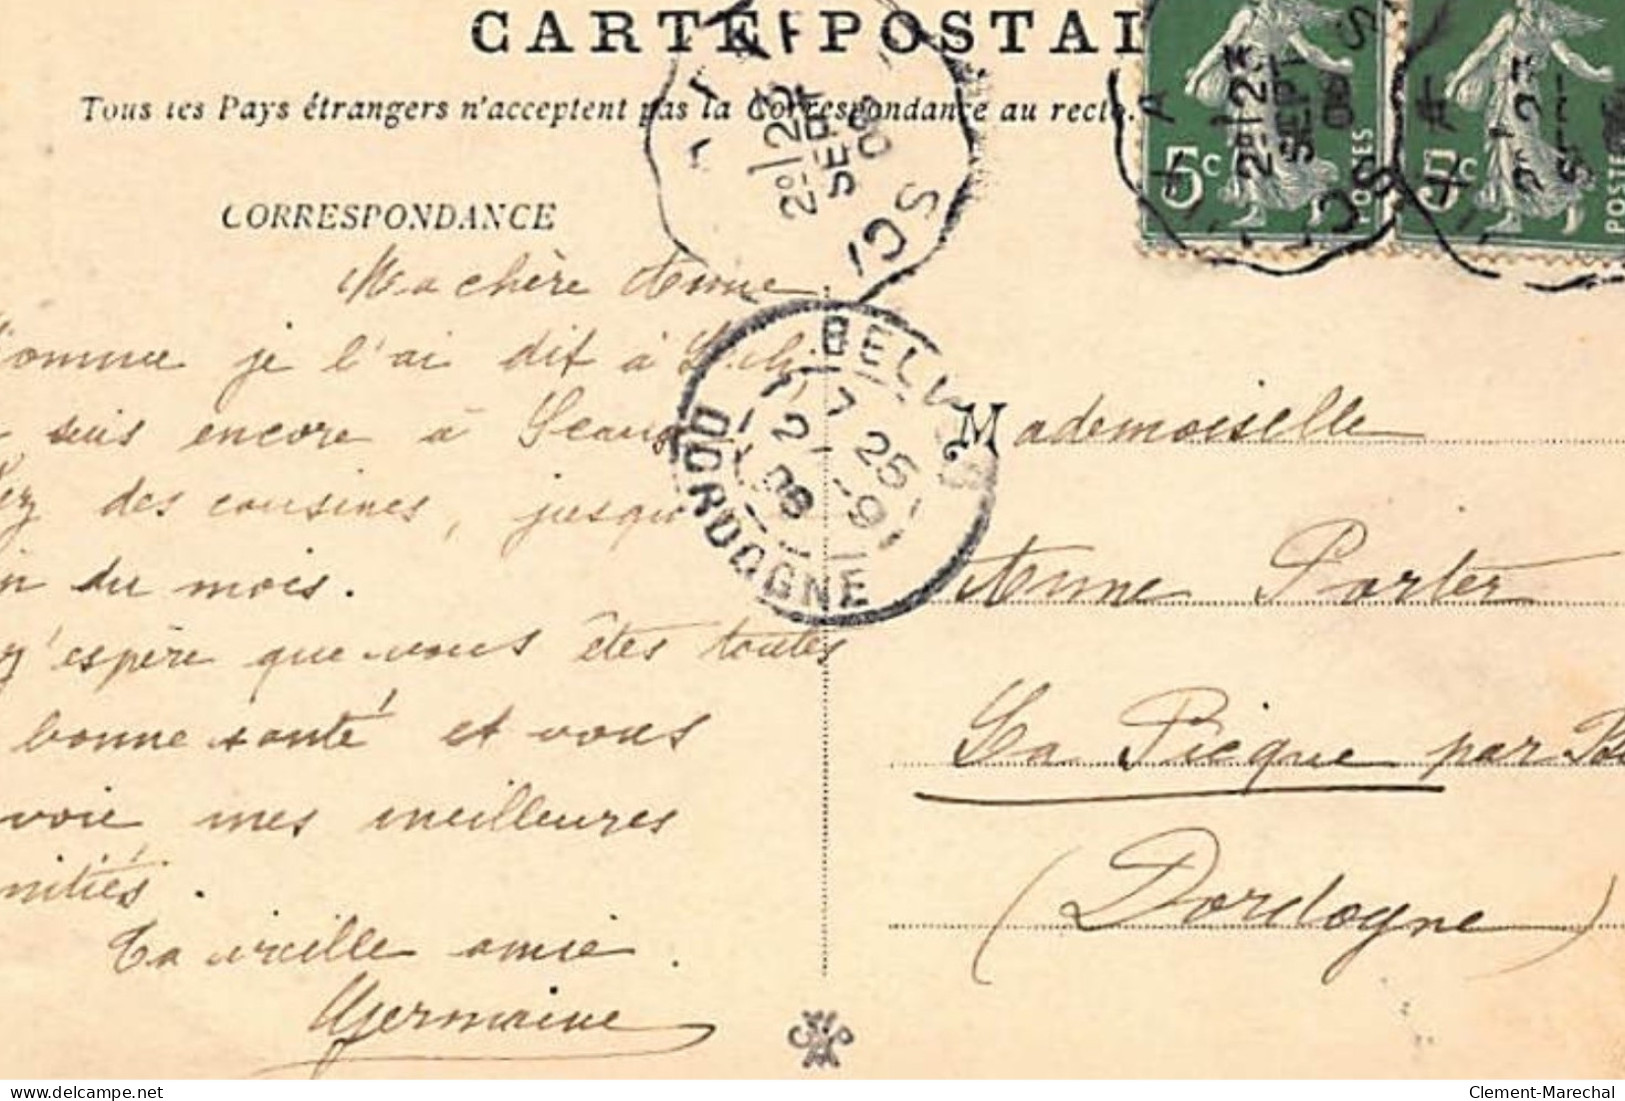 CARTE POSTAL
Tous les Pays étrangers n'acceptent pas la Correspondance au recto.
CORRESPONDANCE
Ma chère Anne
Comme je l'ai dit à
suis encore à
des cousines, jusqu
in du mois.
J'espère que vous êtes toutes
bonne santé et vous
voie mes meilleures
mitiés.
Ta vieille amie.
Germaine
Mademoiselle
Anne Porter
La Picque par
(Dordogne)
2º/23
SEPT
08
BELV
7 25
2 -9
08
DORDOGNE
5c
POSTES
2º/23
SEPT
08
5c
POSTE
delcampe.net
Clement-Marechal